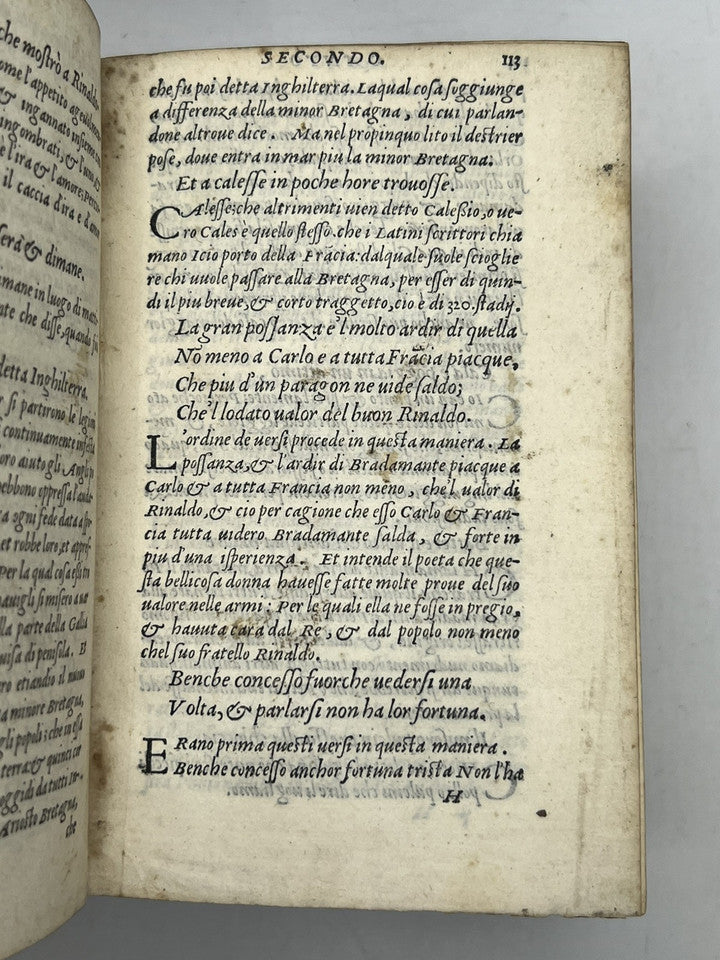 che mostrò a Rinaldo
ome l'appetito
& ingannato insieme
ingombrati, & l'uno, &
e l'ira & l'amore: per
il caccia d'ira e d'amor
serà & dimane.
imane in luogo di
nte che disse, quando
detta Inghilterra.
r si partirono le legioni
continuamente
oro aiuto gli Angli
ebbono oppressa l'
a ogni fede data a
et robbe loro, et
Per la qual cosa essi
uigli si misero a
lla parte della Gallia
uisa di penisola. E
ro etiandio il nuouo
a minore Bretagna,
gli popoli: che in essa
terra: & quinci
oggidi da tutti
Ariosto Bretagna,
che
SECONDO. 113
che fu poi detta Inghilterra. Laqual cosa soggiunge
a differenza della minor Bretagna, di cui parlan-
done altroue dice. Ma nel propinquo lito il destrier
pose, doue entra in mar piu la minor Bretagna.
Et a calesse in poche hore trouosse.
CAlesse; che altrimenti uien detto Calessio, o ue-
ro Cales è quello stesso, che i Latini scrittori chia
mano Icio porto della Frācia: dalquale suole scioglie
re chi uuole passare alla Bretagna, per esser di quin-
di il piu breue, & corto traggetto, cio è di 320. stadij.
La gran possanza e'l molto ardir di quella
No meno a Carlo e a tutta Frācia piacque,
Che piu d'un paragon ne uide saldo;
Che'l lodato ualor del buon Rinaldo.
L'ordine de uersi procede in questa maniera. La
possanza, & l'ardir di Bradamante piacque a
Carlo & a tutta Francia non meno, che'l ualor di
Rinaldo, & cio per cagione che esso Carlo & Fran-
cia tutta uidero Bradamante salda, & forte in
piu d'una isperienza. Et intende il poeta che que-
sta bellicosa donna hauesse fatte molte proue del suo
ualore nelle armi: Per le quali ella ne fosse in pregio,
& hauuta cara dal Re, & dal popolo non meno
chel suo fratello Rinaldo.
Benche concesso fuorche uedersi una
Volta, & parlarsi non ha lor fortuna.
ERano prima questi uersi in questa maniera.
Benche concesso anchor fortuna trista Non l'ha
H